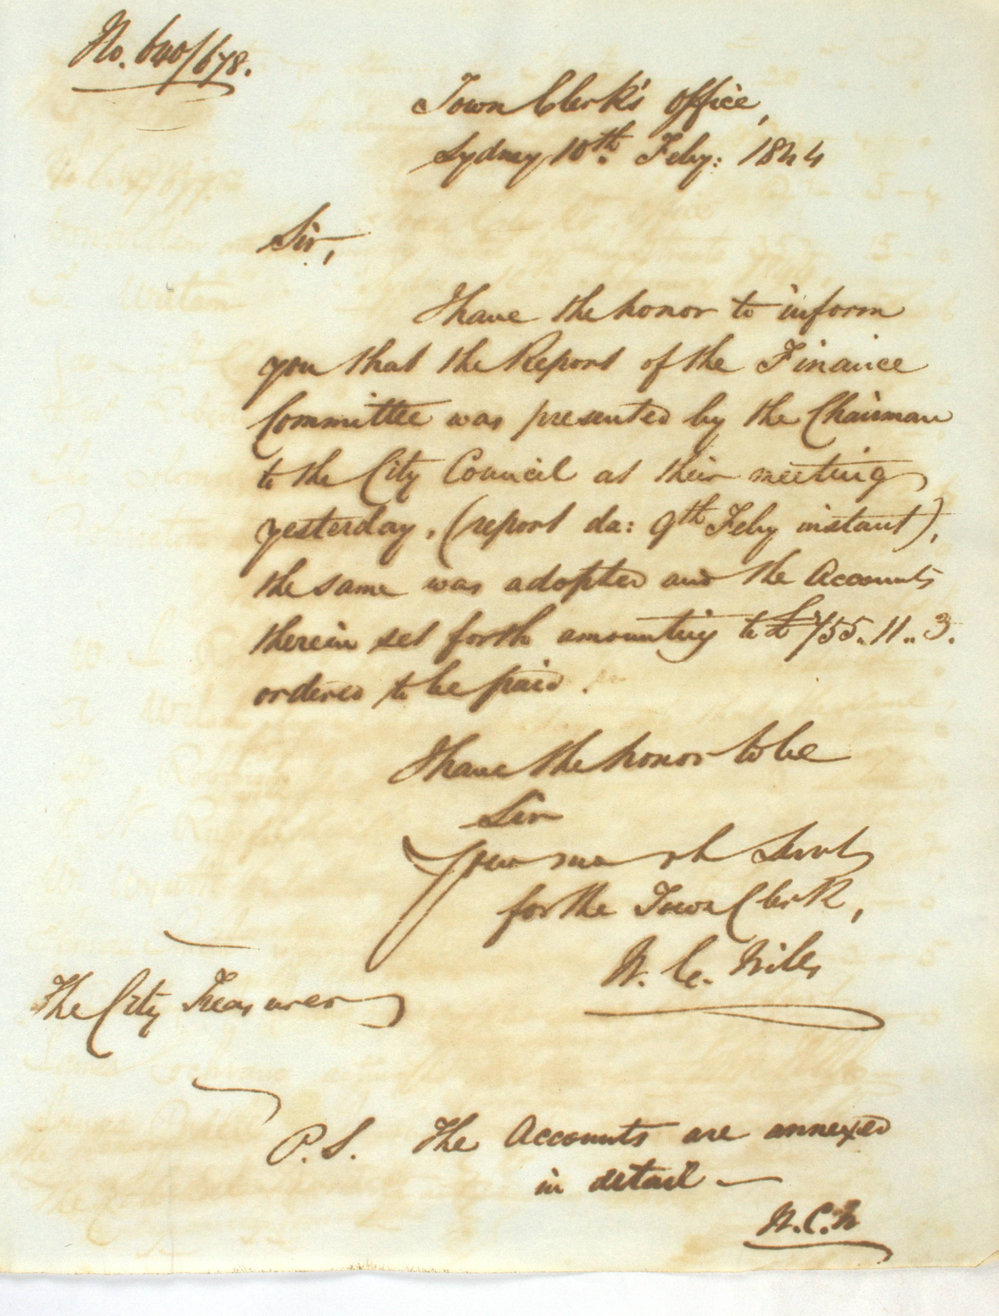 No. 600/678.
Town Clerk's office,
Sydney 10th. Feby: 1844
Sir,
I have the honor to inform
you that the Report of the Finance
Committee was presented by the Chairman
to the City Council at their meeting
yesterday, (report da: 9th Feby instant),
the same was adopted and the Accounts
therein set forth amounting to £755.11..3.
ordered to be paid.
I have the honor to be
Sir
Your Servt
for the Town Clerk,
The City Treasurer
P.S. The Accounts are annexed
in detail —